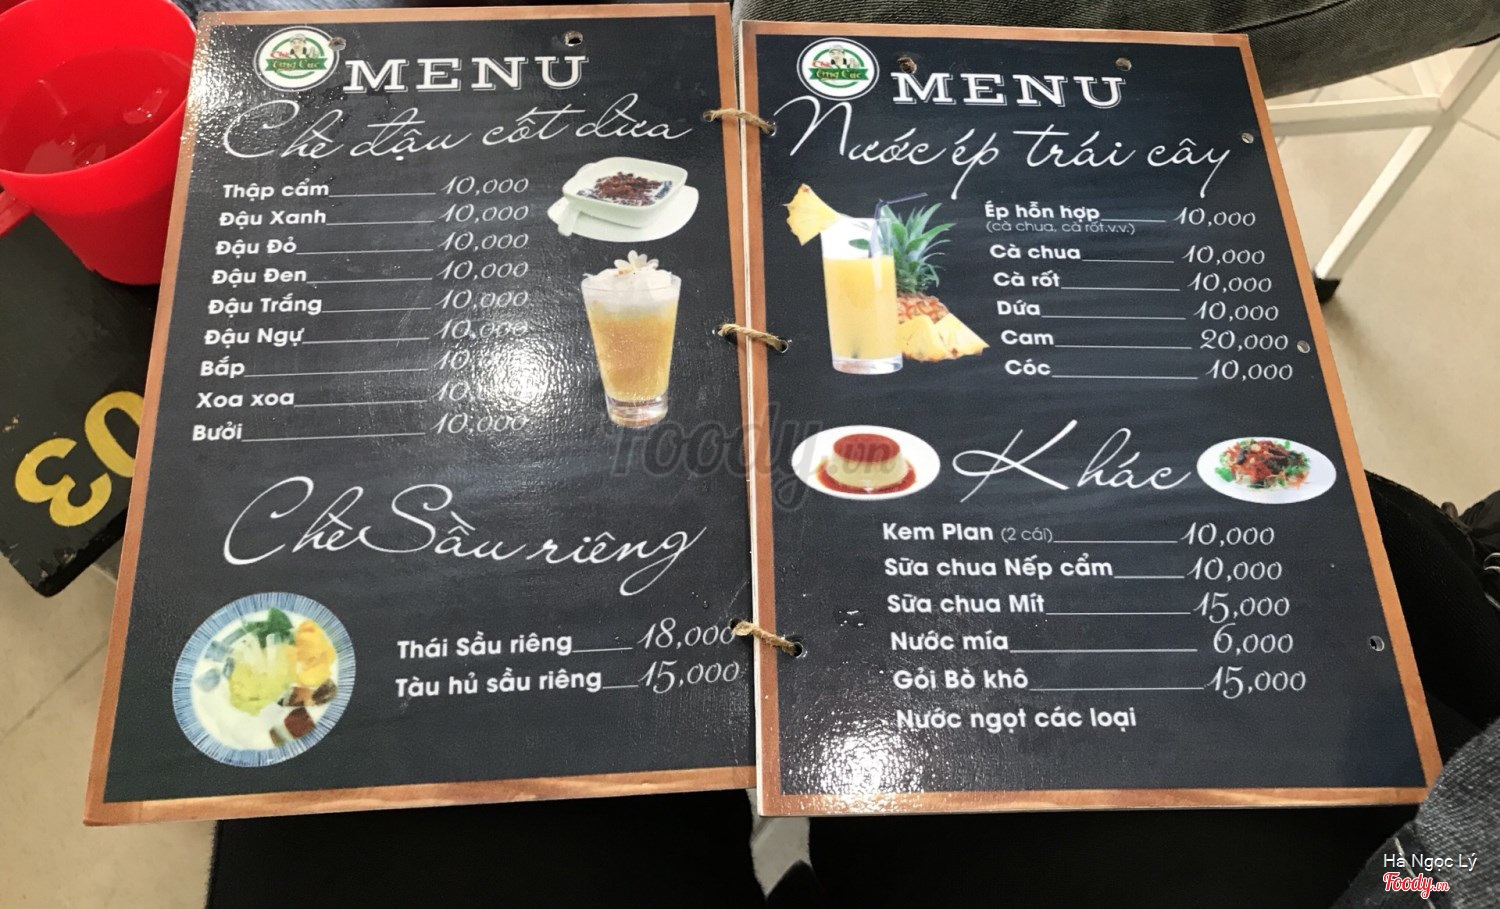 MENU
Chè đậu cốt dừa
Thập cẩm 10,000
Đậu Xanh 10,000
Đậu Đỏ 10,000
Đậu Đen 10,000
Đậu Trắng 10,000
Đậu Ngự 10,000
Bắp 10
Xoa xoa 10,000
Bưởi 10,000
Chè Sầu riêng
Thái Sầu riêng 18,000
Tàu hủ sầu riêng 15,000
MENU
Nước ép trái cây
Ép hỗn hợp 10,000
(cà chua, cà rốt.v.v.)
Cà chua 10,000
Cà rốt 10,000
Dứa 10,000
Cam 20,000
Cóc 10,000
Khác
Kem Plan (2 cái) 10,000
Sữa chua Nếp cẩm 10,000
Sữa chua Mít 15,000
Nước mía 6,000
Gỏi Bò khô 15,000
Nước ngọt các loại
03
Foody.vn
Hà Ngọc Lý
Foody.vn